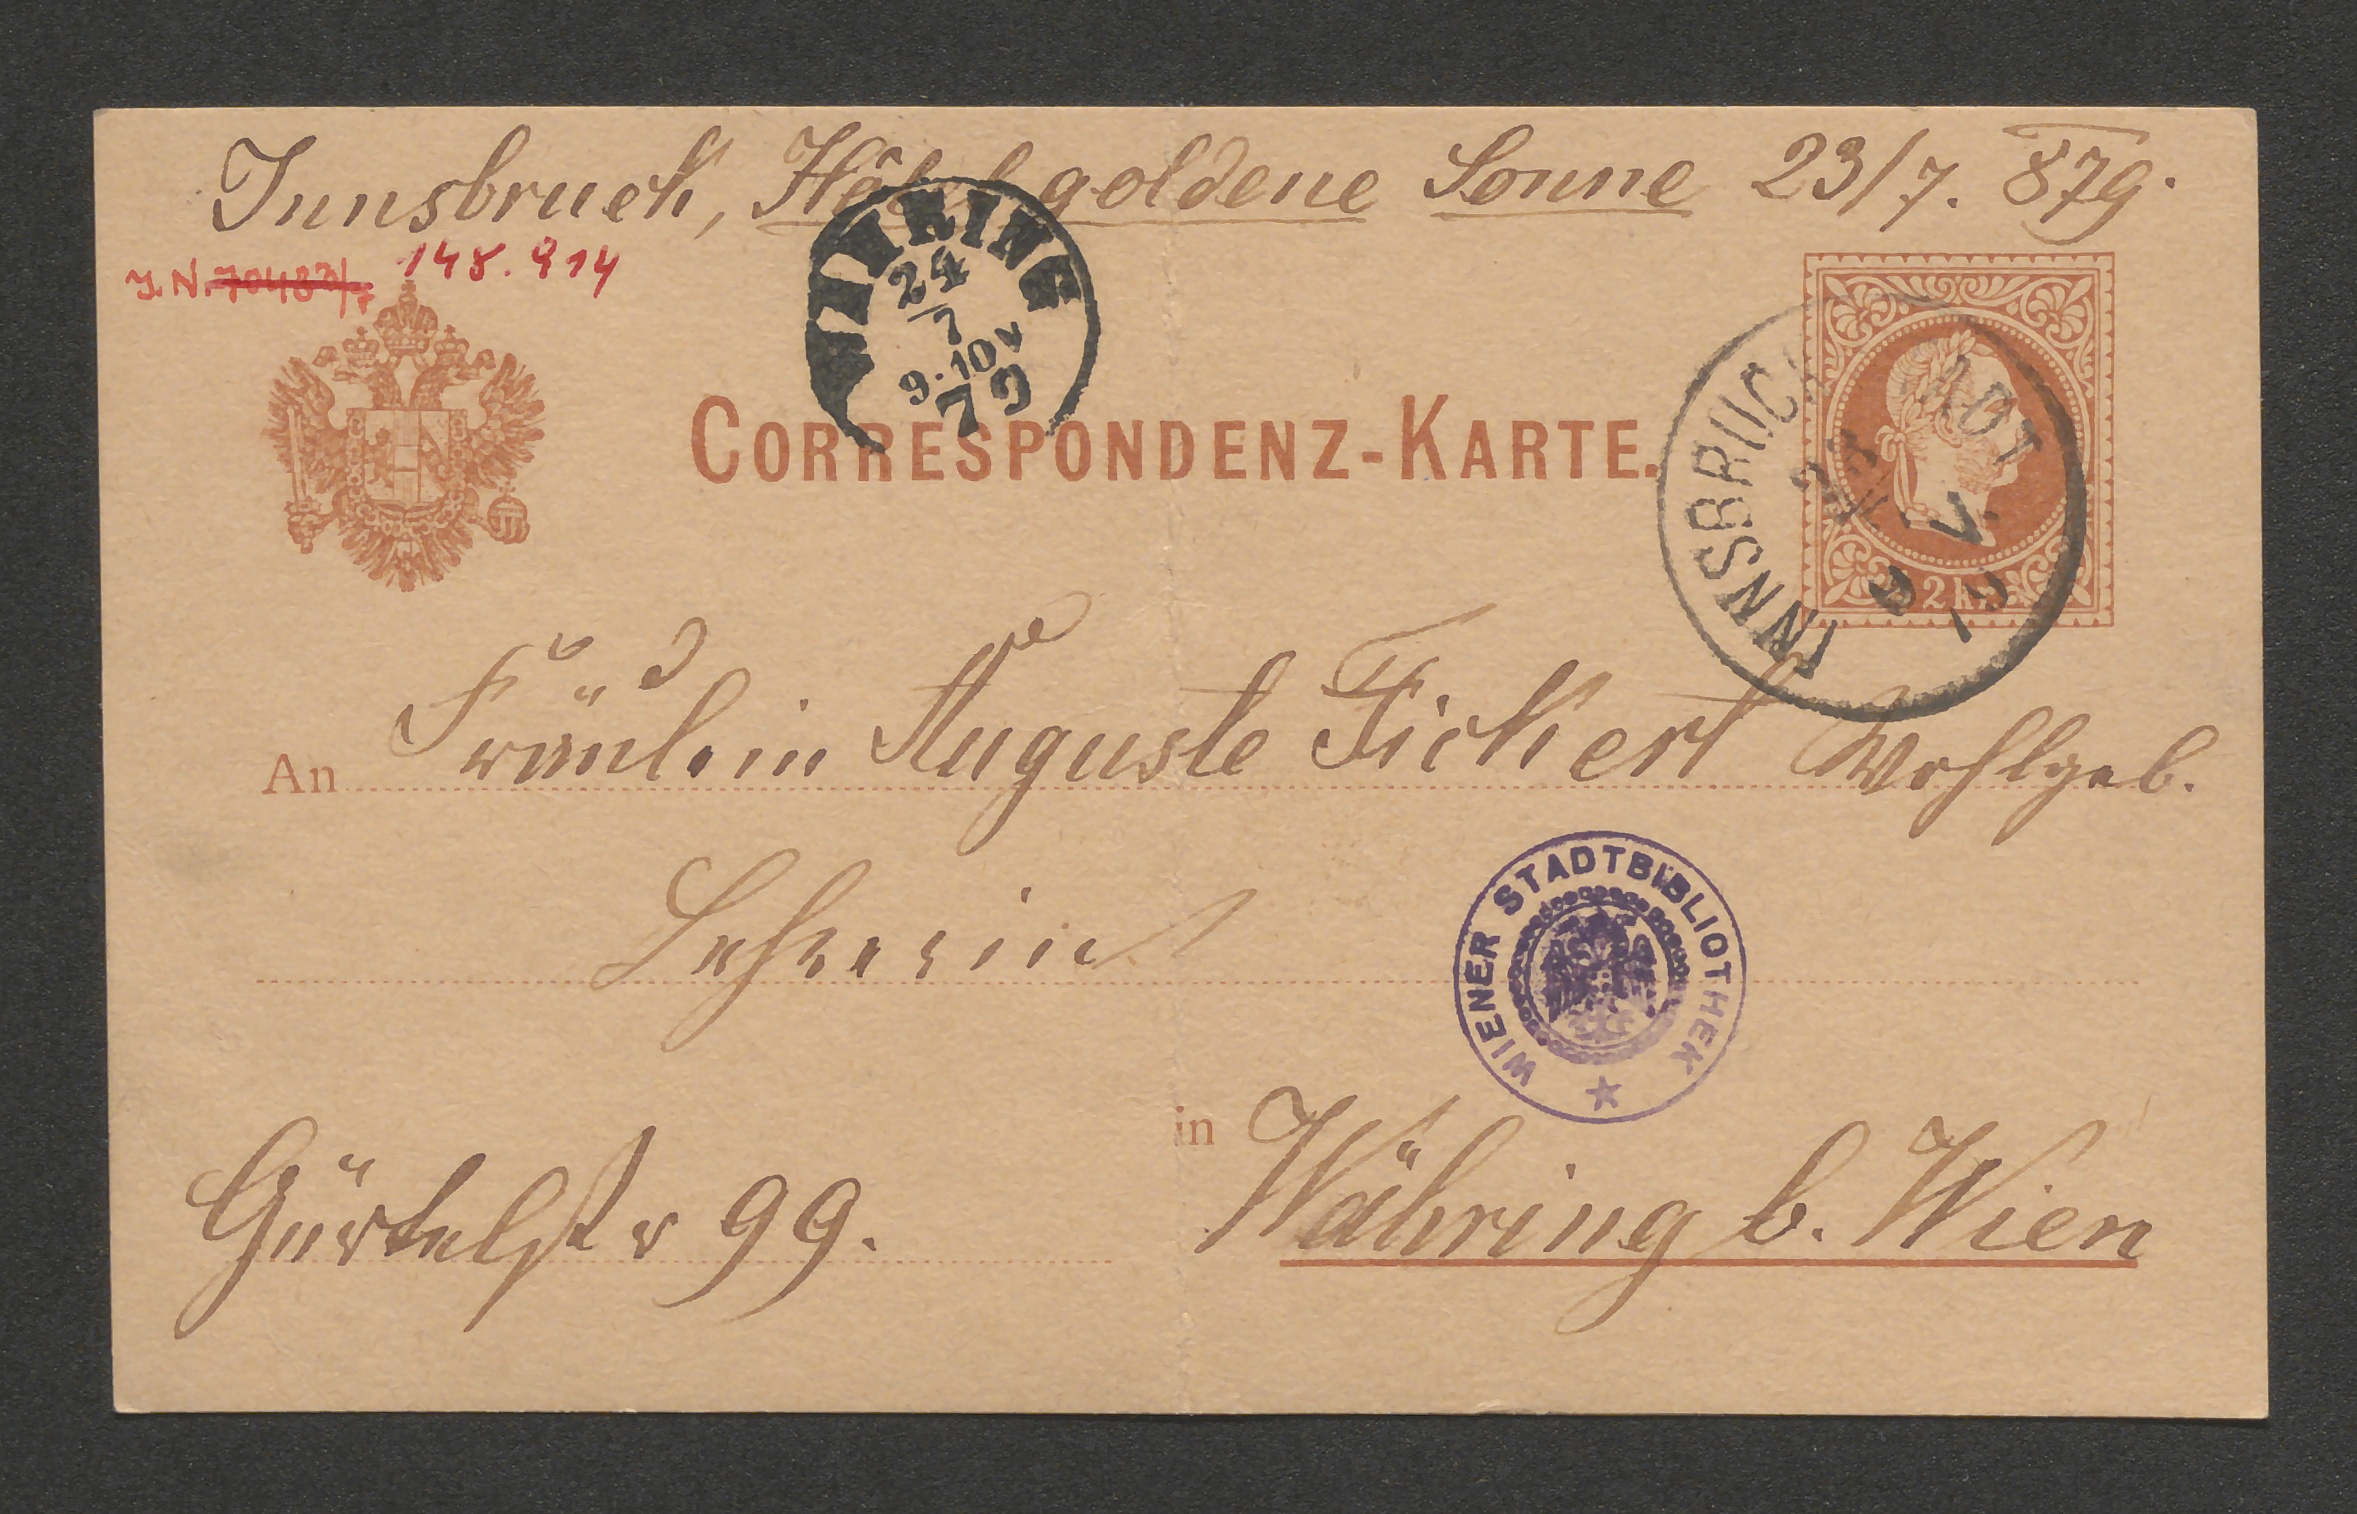 Innsbruck, Hôtel goldene Sonne 23/7. 879.
J.N. 70483/7 148.914
WÄHRING
24
7
9·10V
79
CORRESPONDENZ-KARTE.
INNSBRUCK STADT
23
9 V.
79
2 kr.
An Fräulein Auguste Fickert Wohlgeb.
Lehrerin
WIENER STADTBIBLIOTHEK
in Währing b. Wien
Gürtelstr 99.